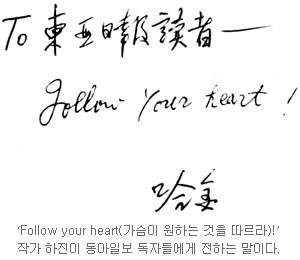 To 東亞日報讀者—
Follow Your heart!
哈金
‘Follow your heart(가슴이 원하는 것을 따르라)!’
작가 하진이 동아일보 독자들에게 전하는 말이다.